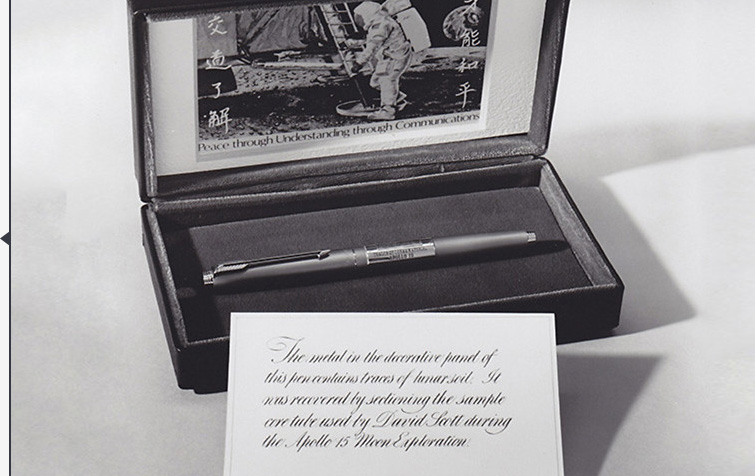 交
通
了
解
能
和
平
Peace through Understanding through Communications
The metal in the decorative panel of
this pen contains traces of lunar soil. It
was recovered by sectioning the sample
core tube used by David Scott during
the Apollo 15 Moon Exploration.